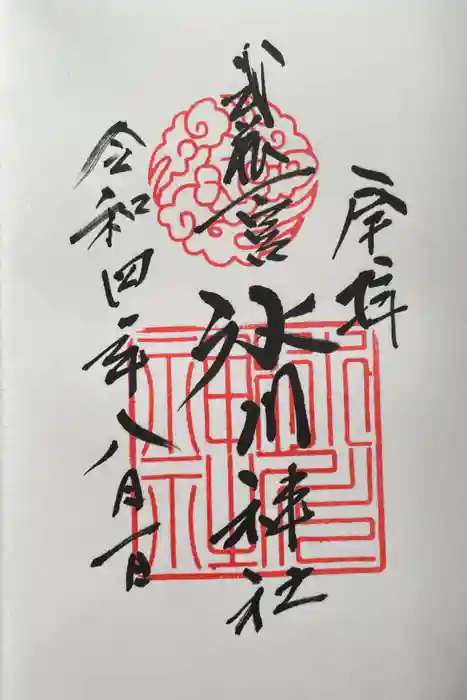 奉拝
武蔵一宮
氷川神社
令和四年八月一日
氷川神社